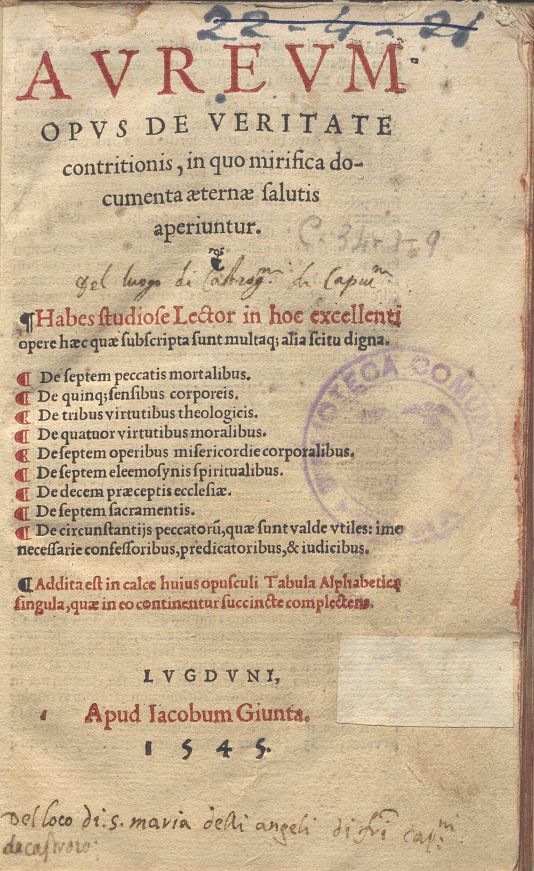 22-4-21
AVREVM
OPVS DE VERITATE
contritionis, in quo mirifica do-
cumenta æternæ salutis
aperiuntur.
Del luogo di
¶Habes studiose Lector in hoc excellenti
opere hæc quæ subscripta sunt multaq; alia scitu digna.
¶ De septem peccatis mortalibus.
¶ De quinq; sensibus corporeis.
¶ De tribus virtutibus theologicis.
¶ De quatuor virtutibus moralibus.
¶ De septem operibus misericordie corporalibus.
¶ De septem eleemosynis spiritualibus.
¶ De decem præceptis ecclesiæ.
¶ De septem sacramentis.
¶ De circunstantijs peccatorũ, quæ sunt valde vtiles: imo
necessarie confessoribus, predicatoribus, & iudicibus.
BIBLIOTECA COMUNALE
¶Addita est in calce huius opusculi Tabula Alphabetica
singula, quæ in eo continentur succincte complectens.
LVGDVNI,
Apud Iacobum Giunta.
1545.
Del loco di S. maria delli angeli di